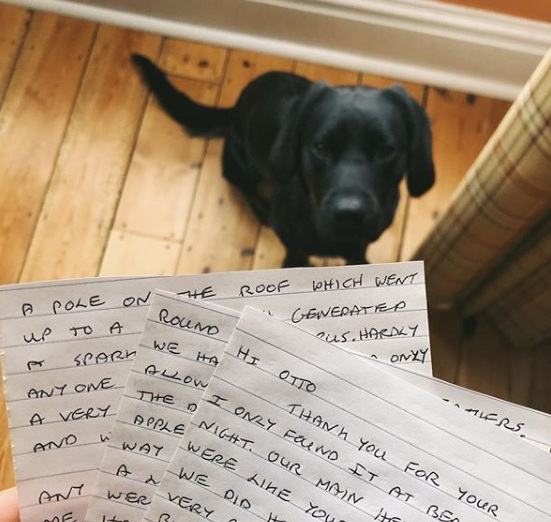 A POLE ON THE ROOF WHICH WENT
UP TO A GENERATED
A SPARK BUS. HARDLY
ANYONE ONLY
A VERY
AND
ANY
ROUND
WE HA
ALLOW
THE
APPLE
WAY
A
WER
HI OTTO
THANK YOU FOR YOUR
I ONLY FOUND IT AT BED
NIGHT. OUR MAIN HE
WERE LIKE YOU
WE DID
VERY